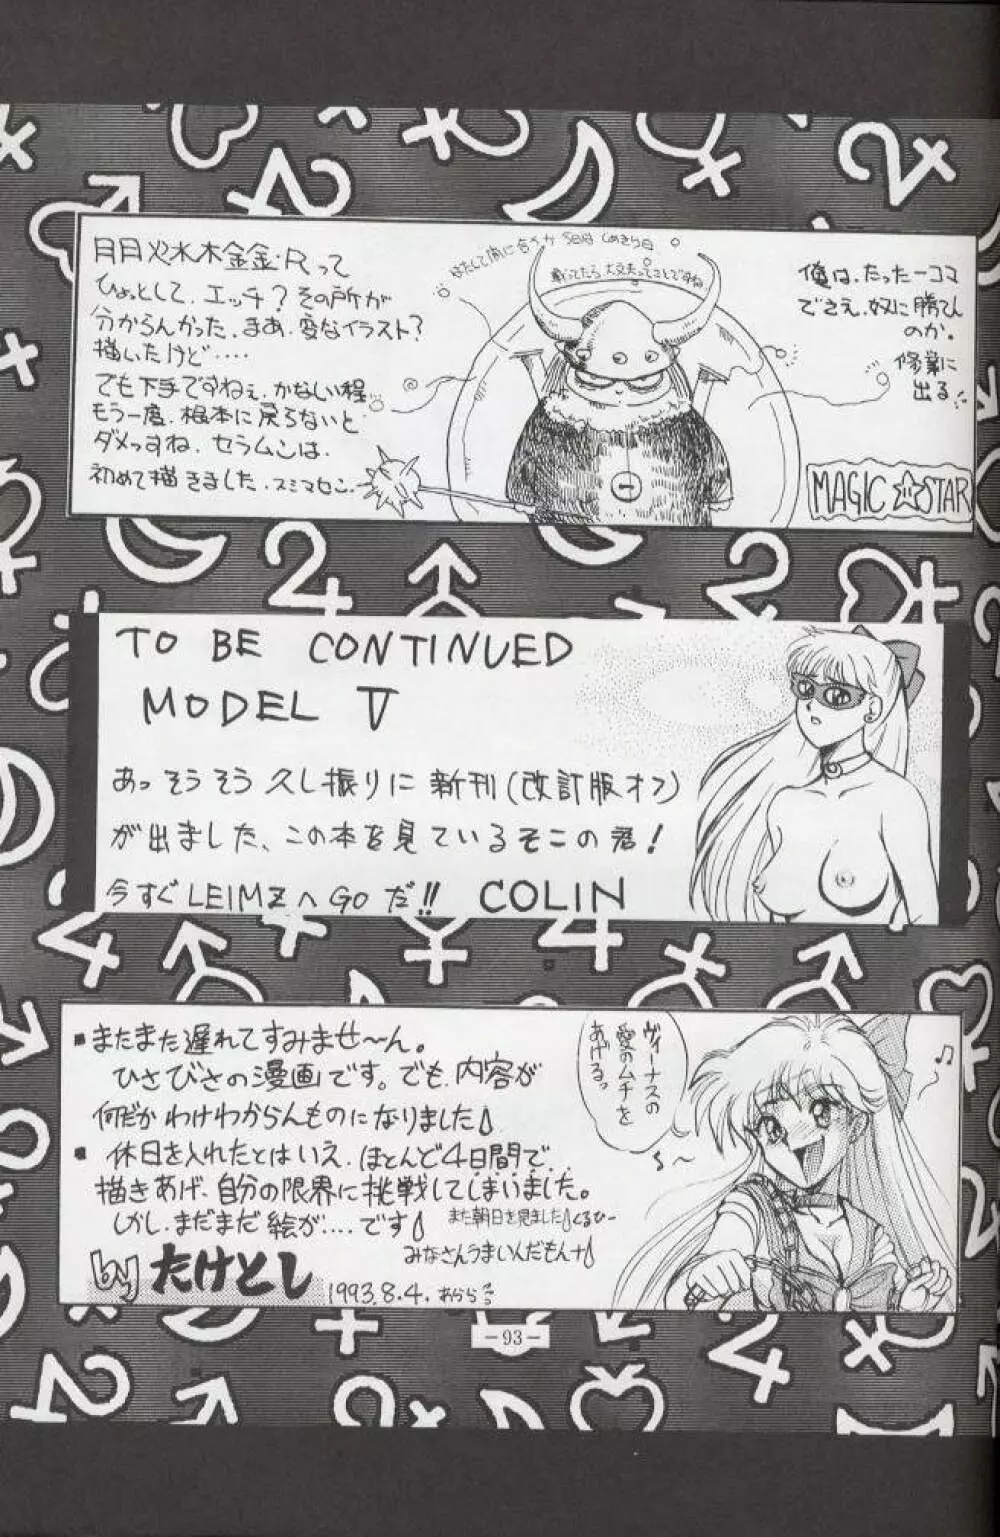 月月火水木金金・Rって
ひょっとして、エッチ？その所が
分からんかった、まあ、変なイラスト？
描いたけど‥‥
でも下手ですねぇ、かなしい程
もう一度、根本に戻らないと
ダメっすね、セラムンは、
初めて描きました、スミマセン、
はたして間に合うか 5日は しめきり日
載ってたら 大丈夫ってことですね
俺は、たった一コマ
でさえ、奴に勝てん
のか。
修業に
出る!!
MAGIC STAR
TO BE CONTINUED
MODEL V
あっそうそう 久し振りに 新刊（改訂版オフ）
が出ました、この本を見ているそこの君！
今すぐ LEIMZへ GO だ!! COLIN
またまた遅れてすみませ〜ん。
ひさびさの漫画です。でも、内容が
何だかわけわからんものになりました
休日を入れたとはいえ、ほとんど4日間で、
描きあげ、自分の限界に挑戦してしまいました。
しかし、まだまだ絵が‥‥です
また朝日を見ました くるひー
みなさんうまいんだもんナ
by たけとし
1993.8.4. あらら
ヴィーナスの
愛のムチを
あげるっ
－93－